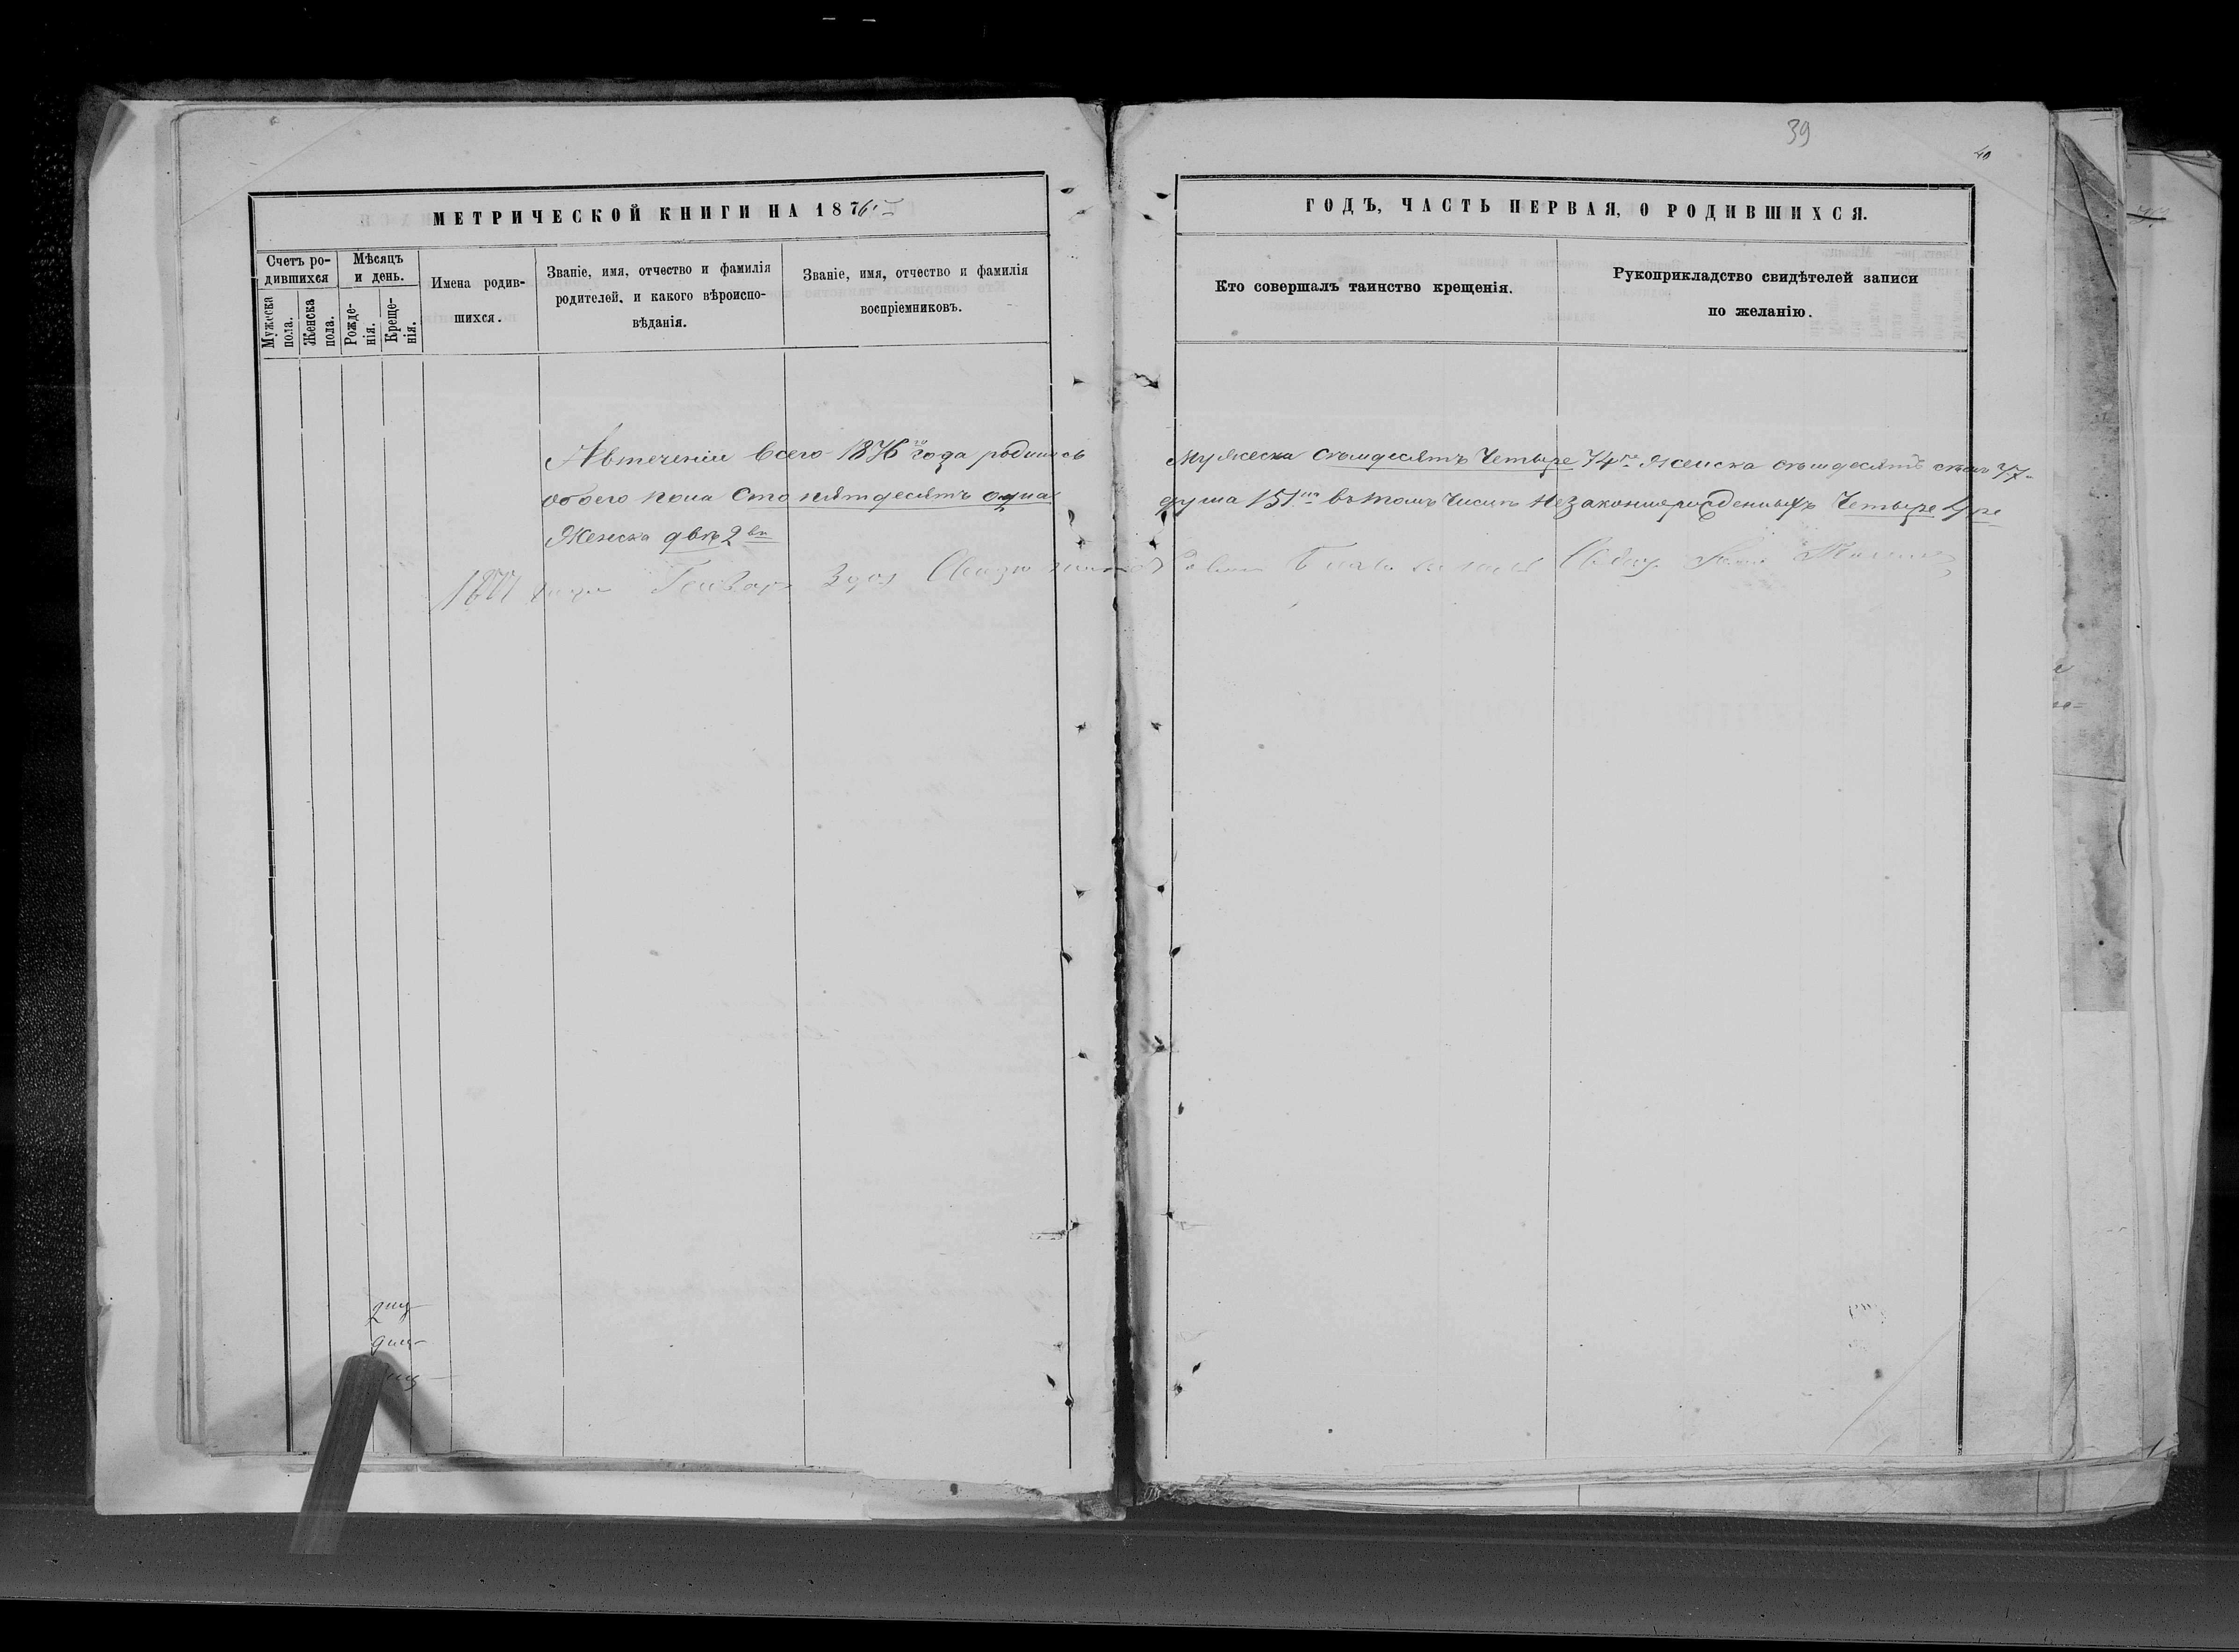 39
40
МЕТРИЧЕСКОЙ КНИГИ НА 1876й
ГОДЪ, ЧАСТЬ ПЕРВАЯ, О РОДИВШИХСЯ.
Счетъ ро-
дившихся
Мужеска
пола.
Женска
пола.
Мѣсяцъ
и день.
Рожде-
нія.
Креще-
нія.
Имена родив-
шихся.
Званіе, имя, отчество и фамилія
родителей, и какого вѣроиспо-
вѣданія.
Званіе, имя, отчество и фамилія
воспріемниковъ.
Кто совершалъ таинство крещенія.
Рукоприкладство свидѣтелей записи
по желанію.
Автеченіи всего 1876го года родилось Мужеска семдесятъ Четыре 74ре Женска семдесятъ семь 77-
обоего пола Сто пятдесятъ одна душа 151на въ томъ Числѣ Незаконнорожденныхъ Четыре 4ре
Женска двѣ 2вѣ
1877 года Генваря